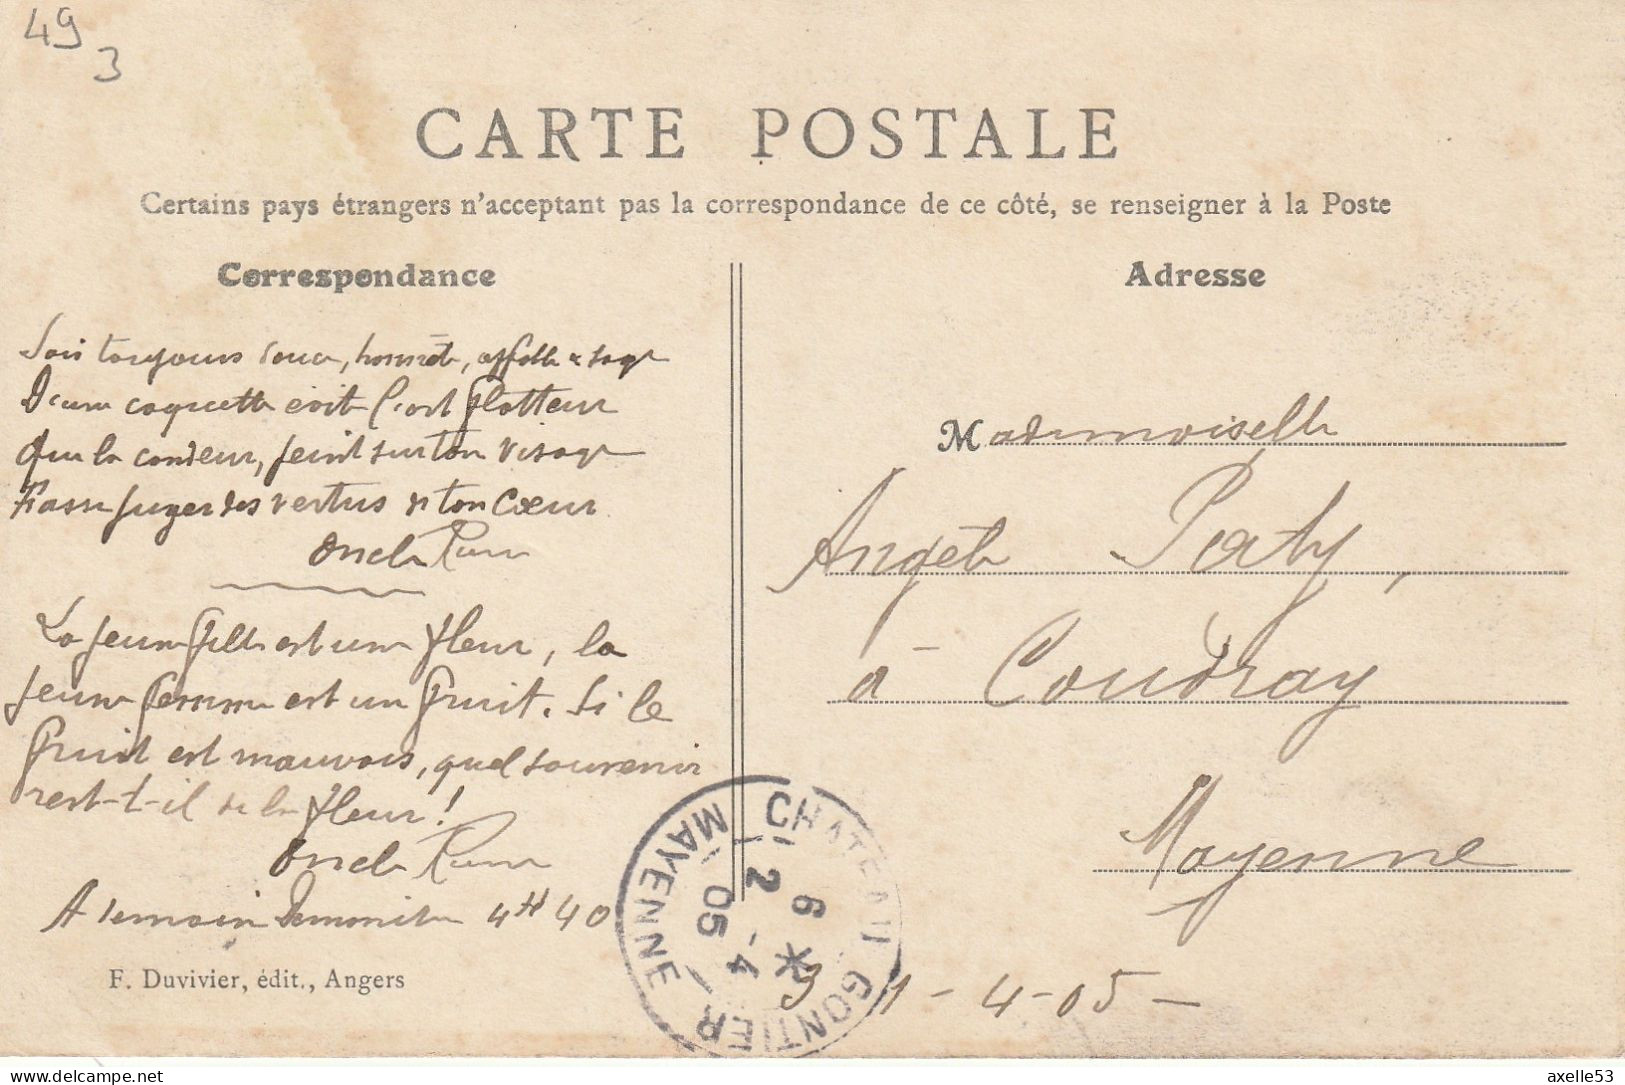 49
3
CARTE POSTALE
Certains pays étrangers n'acceptant pas la correspondance de ce côté, se renseigner à la Poste
Correspondance
Adresse
Sois toujours douce, honnête, affable & sage
D'une coquette évite l'art flatteur
Que la candeur, peint sur ton visage
Fasse juger des vertus de ton Cœur
Oncle
La jeune fille est une fleur, la
jeune femme est un fruit. Si le
fruit est mauvais, quel souvenir
rest-t-il de la fleur!
Oncle
A demain 4H40
F. Duvivier, édit., Angers
Mademoiselle
Angèle
à Coudray
Mayenne
1-4-05-
CHATEAU GONTIER
MAYENNE
6 *
2 -4
05
axelle53
delcampe.net